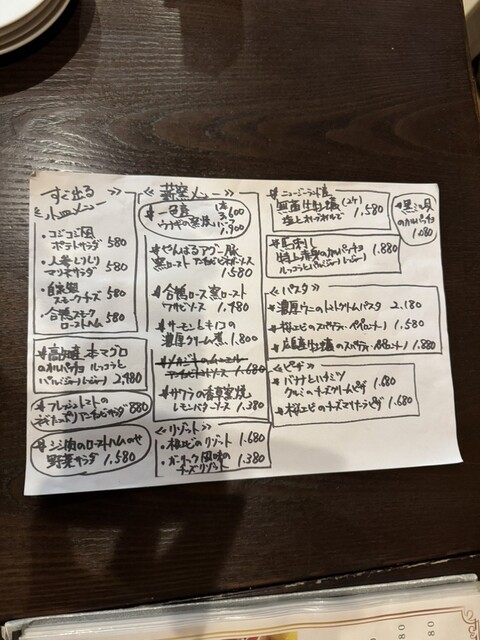 すぐ出る
小皿メニュー
・コジコジ風
ポテトサラダ 580
・人参とりんご
マリネサラダ 580
・自家製
スモークチーズ 580
・合鴨スモーク
ローストハム 580
本マグロ
のカルパッチョ ルッコラと
パルミジャーレジャーノ 2,980
フレッシュトマトの
アンチョビサラダ 880
ジビエ肉のローストハムのせ
野菜サラダ 1,580
≪薪窯メニュー≫
一色産
ウナギの窯焼き
1本 3,600
ハーフ 1,900
やんばるアグー豚
窯ロースト アンチョビオニオンソース
1,580
合鴨ロース 窯ロースト
ワサビソース 1,480
サーモンときのこの
濃厚クリーム煮 1,800
1,680
サワラの香草窯焼
レモンバターソース 1,380
≪リゾット≫
・桜エビのリゾット 1,680
・ガーリック風味の
チーズリゾット 1,380
ニュージーランド産
無菌生牡蠣(2ケ)
塩とオリーブオイルで 1,580
馬刺し
特上赤身のカルパッチョ
ルッコラとパルミジャーレジャーノ 1,880
のカルパッチョ
1,080
≪パスタ≫
濃厚ウニのトマトクリームパスタ 2,180
桜エビのスパゲティ・ペペロンチーノ 1,580
広島産牡蠣のスパゲティ・ペペロンチーノ 1,880
≪ピザ≫
バナナとハチミツ
クルミのチーズクリームピザ 1,680
桜エビのチーズマリナーラピザ 1,680